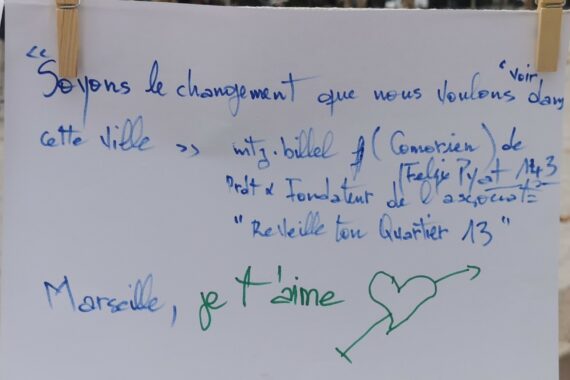 “ Soyons le changement que nous voulons "voir dans
cette ville » mtz.billel (Comorien) de
Félix Pyat 143
Prdt & Fondateur de l'associat°
"Reveille ton Quartier 13"
Marseille, je t'aime